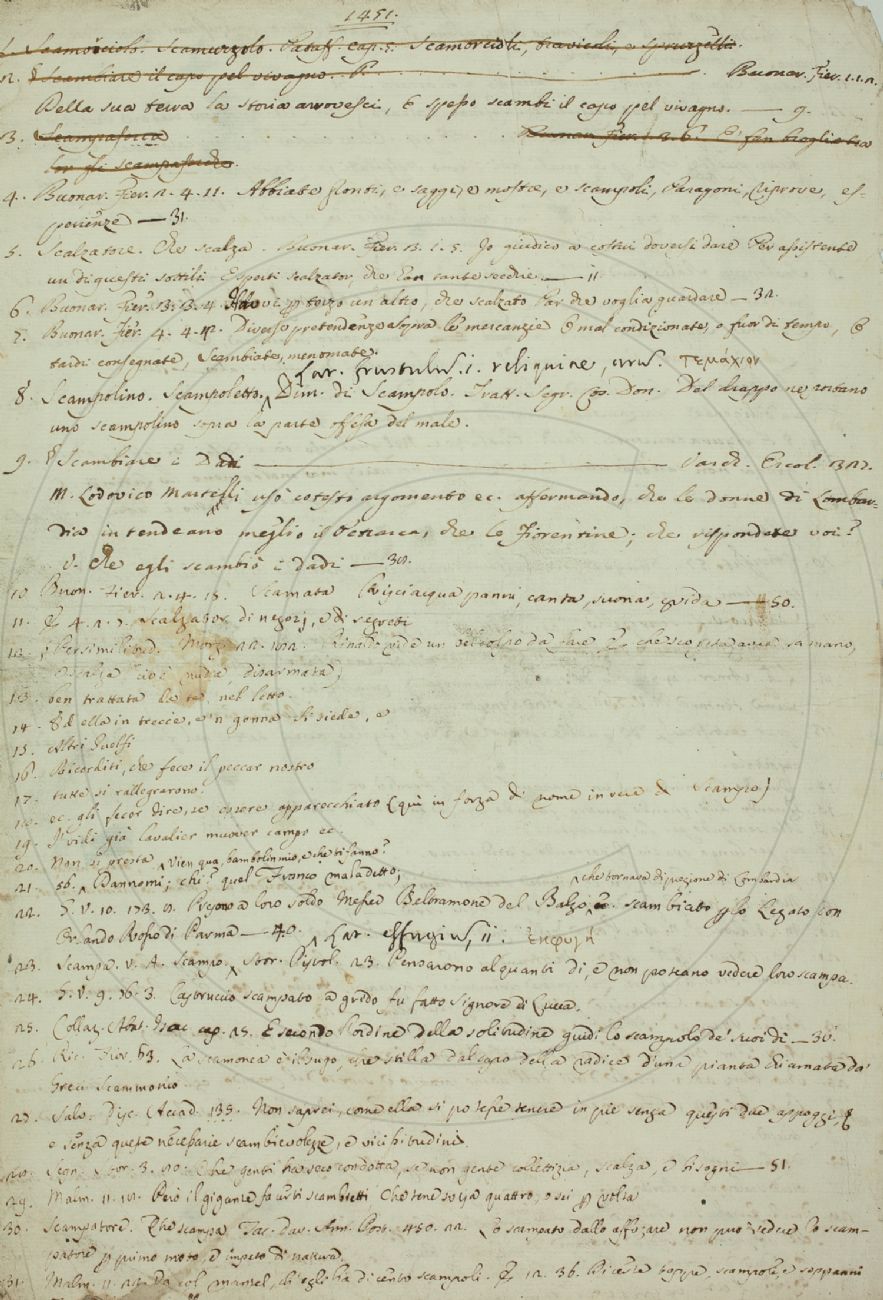 1451.
1. Scamorciolo. Scamurzolo. Pataff. cap. 5. Scamorcioli, bravieoli, e spruzzetti.
2. § Scambiare il capo pel vivagno. P. Buonar. Fier. 1. 1. 2.
Della sua terra la storia arrovesci, E spesso scambi il capo pel vivagno. — 9.
3. Scampaforca Buonar. Fier. 1. 2. 6. E' fan broglio tra
lor gli scampaforche.
4. Buonar. Fier. 2. 4. 11. Abbiate pronti, e saggi, e mostre, e scampoli, Paragoni, riprove, es-
perienze — 31.
5. Scalzatore. Che scalza. Buonar. Fier. 3. 1. 5. Io giudico a costui doversi dare Per assistente
un di questi sottili Esperti scalzator, che tante secche — 11.
6. Buonar. Fier. 3. 3. 4. p terzo un altro, che scalzato par che voglia guardare — 32.
7. Buonar. Fier. 4. 4. 12. Diverse pretendenze sopra le mercanzie O mal condizionate, o fuor di tempo, E
tardi consegnate, Scambiate, menomate.
Lat. frustulus. i. reliquiae, arum. τεμάχιον
8. Scampolino. Scampoletto. Dim. di Scampolo. Tratt. Segr. Cos. Don. Del drappo ne portano
uno scampolino sopra la parte offesa del male.
9. § Scambiare i Dadi — Varch. Ercol. 312.
M. Lodovico Martelli usò cotesto argomento ec. affermando, che le donne di Lombar-
dia intendeano meglio il Petrarca, che le Fiorentine; che rispondete voi?
V. Che egli scambiò i dadi — 30.
10. Buon. Fier. 2. 4. 15. Scamata Risciacqua panni, canta, suona, grida — 50.
11. E 4. 2. 7. Scalzator di negozj, e di segreti
12. § Per similitud. Morg. 22. Rinaldo vide un bel colpo da fare, E che scoperta avea la mano,
E scalza cioè nuda, disarmata;
13. ben trattata la te nel letto.
14. Ed ella in treccie, e 'n gonna si siede, e
15. Altri Guelfi
16. Ricorditi, che fece il peccar nostro
17. tutte si rallegrarono.
18. ec. gli fecer dire, se essere apparecchiato (qui in forza di nome in vece di Scampo)
19. I' vidi già Cavalier muover campo ec.
20. Non si presta Vien qua, bambolin mio, e che ti fanno?
21. 56. Dannomi; chi? quel Franco maladetto;
che tornava di prigione di Lombardia
22. G. V. 10. 173. 2. Presono a loro soldo Messer Beltramone del Balzo, scambiato p lo Legato con
Orlando Rosso di Parma — 40. Lat. effugium, ii. ἐκφυγή
23. Scampa. v. A. Scampo. Stor. Pistol. 23. Pensarono alquanti dì, e non poteano vedere loro scampa.
24. G. V. 9. 36. 3. Castruccio scampato a grido fu fatto Signore di Lucca.
25. Collaz. Abat. Isac cap. 25. E secondo l'ordine della solitudine guidi lo scampolo de' suoi dì — 36.
26. Ric. Fior. 63. La Scamonea è il sugo, che stilla dal capo della radice d'una pianta chiamata da'
Greci Scammonio.
27. Salv. Disc. Accad. 135. Non saprei, come ella si potesse tenere in piè senza questi due appoggi, E
e senza queste necessarie scambievolezze, e vicissitudini.
28. Segn. Stor. 3. 80. Che genti ha seco condotta, se non gente collettizia, scalza, e bisogni — 51.
29. Malm. 11. 12. Però il gigante fa certi scambietti Che tene scaja quattro, o sei p volta
30. Scampatore. Che scampa Tac. Dav. Ann. Post. 450. 22. Lo scampato dallo affogare non può vedere lo scam-
patore p primo moto, e impeto di natura.
31. Malm. 11. 22. Da col mantel, ch'egli ha di cento scampoli. E 12. 36. Pi ceste toppe scampoli, e soppanni